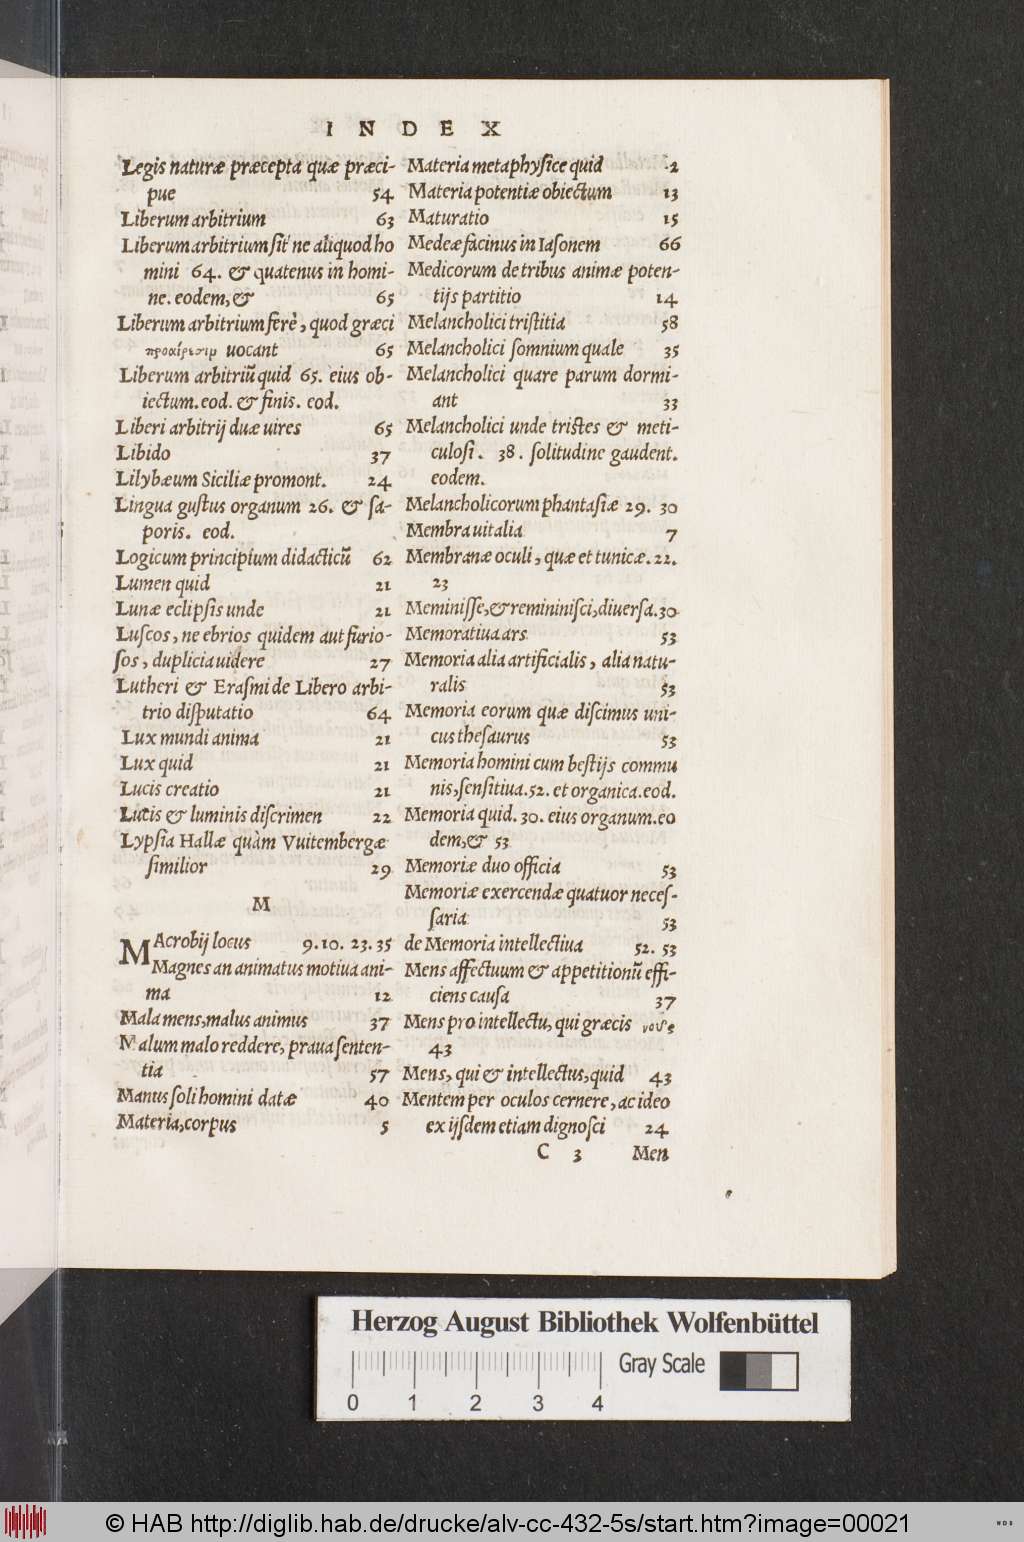 INDEX
Legis naturæ præcepta quæ præci-
pue 54
Liberum arbitrium 63
Liberum arbitrium sit ne aliquod ho
mini 64. & quatenus in homi-
ne. eodem, & 65
Liberum arbitrium ferè, quod græci
προαίρεσιμ uocant 65
Liberum arbitriũ quid 65. eius ob-
iectum. eod. & finis. eod.
Liberi arbitrij duæ uires 65
Libido 37
Lilybæum Siciliæ promont. 24
Lingua gustus organum 26. & sa-
poris. eod.
Logicum principium didacticũ 62
Lumen quid 21
Lunæ eclipsis unde 21
Luscos, ne ebrios quidem aut furio-
sos, duplicia uidere 27
Lutheri & Erasmi de Libero arbi-
trio disputatio 64
Lux mundi anima 21
Lux quid 21
Lucis creatio 21
Lucis & luminis discrimen 22
Lypsia Hallæ quàm Vuitembergæ
similior 29
M
MAcrobij locus 9. 10. 23. 35
Magnes an animatus motiua ani-
ma 12
Mala mens, malus animus 37
Malum malo reddere, praua senten-
tia 57
Manus soli homini datæ 40
Materia, corpus 5
Materia metaphysice quid 2
Materia potentiæ obiectum 13
Maturatio 15
Medeæ facinus in Iasonem 66
Medicorum de tribus animæ poten-
tijs partitio 14
Melancholici tristitia 58
Melancholici somnium quale 35
Melancholici quare parum dormi-
ant 33
Melancholici unde tristes & meti-
culosi. 38. solitudine gaudent.
eodem.
Melancholicorum phantasiæ 29. 30
Membra uitalia 7
Membranæ oculi, quæ et tunicæ. 22.
23
Meminisse, & remininisci, diuersa. 30
Memoratiua ars 53
Memoria alia artificialis, alia natu-
ralis 53
Memoria eorum quæ discimus uni-
cus thesaurus 53
Memoria homini cum bestijs commu
nis, sensitiua. 52. et organica. eod.
Memoria quid. 30. eius organum. eo
dem, & 53
Memoriæ duo officia 53
Memoriæ exercendæ quatuor neces-
saria 53
de Memoria intellectiua 52. 53
Mens affectuum & appetitionũ effi-
ciens causa 37
Mens pro intellectu, qui græcis νοῦς
43
Mens, qui & intellectus, quid 43
Mentem per oculos cernere, ac ideo
ex ijsdem etiam dignosci 24
C 3 Men
Herzog August Bibliothek Wolfenbüttel
Gray Scale
0 1 2 3 4
© HAB http://diglib.hab.de/drucke/alv-cc-432-5s/start.htm?image=00021
WDB